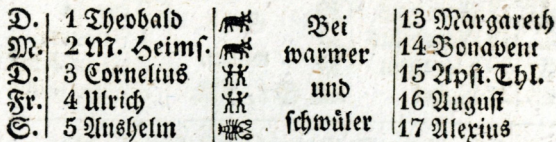 D. 1 Theobald Bei 13 Margareth
M. 2 M. Heimf. warmer 14 Bonavent
D. 3 Cornelius und 15 Apst. Thl.
Fr. 4 Ulrich schwüler 16 August
S. 5 Anshelm 17 Alexius